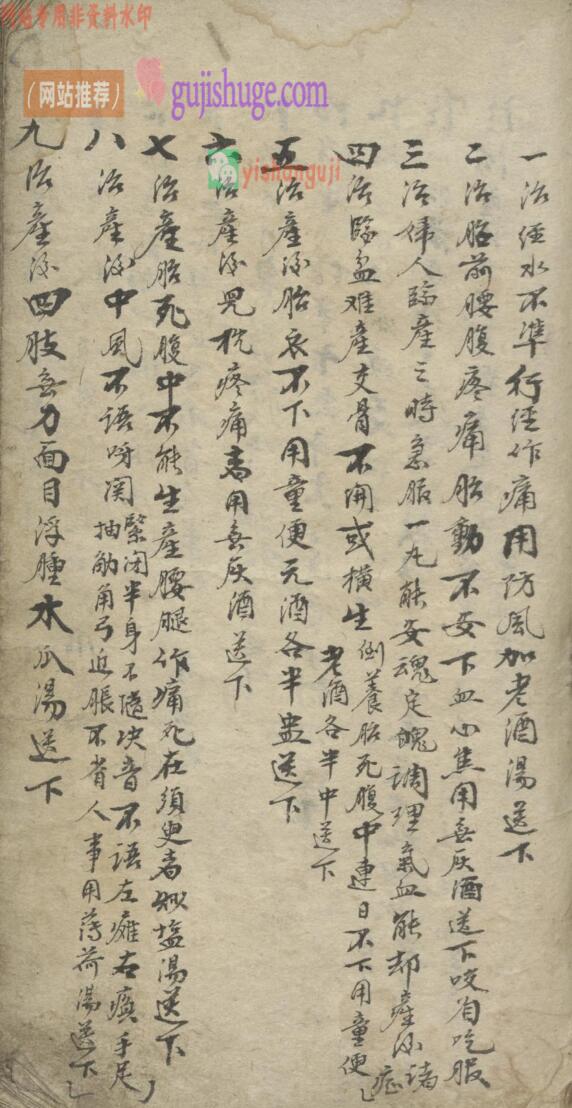 网站专用非资料水印
（网站推荐）
gujishuge.com
yishanguji
一治经水不準行经作痛用防風加老酒湯送下
二治胎前腰腹疼痛胎動不安下血心焦用無灰酒送下咬省吃服
三治婦人臨產之時急服一丸能安魂定魄調理氣血能却產後諸症
四治臨盆难產交骨不開或横生倒養胎死腹中連日不下用童便
老酒各半中送下
五治產後胎衣不下用童便元酒各半盅送下
六治產後兒枕疼痛者用無灰酒送下
七治產胎死腹中不能生產腰腿作痛死在須臾者炒塩湯送下
八治產後中風不語呀関緊闭半身不隨决音不語左癱右瘓手足
抽觔角弓近脹不省人事用薄荷湯送下
九治產後四肢無力面目浮腫水瓜湯送下